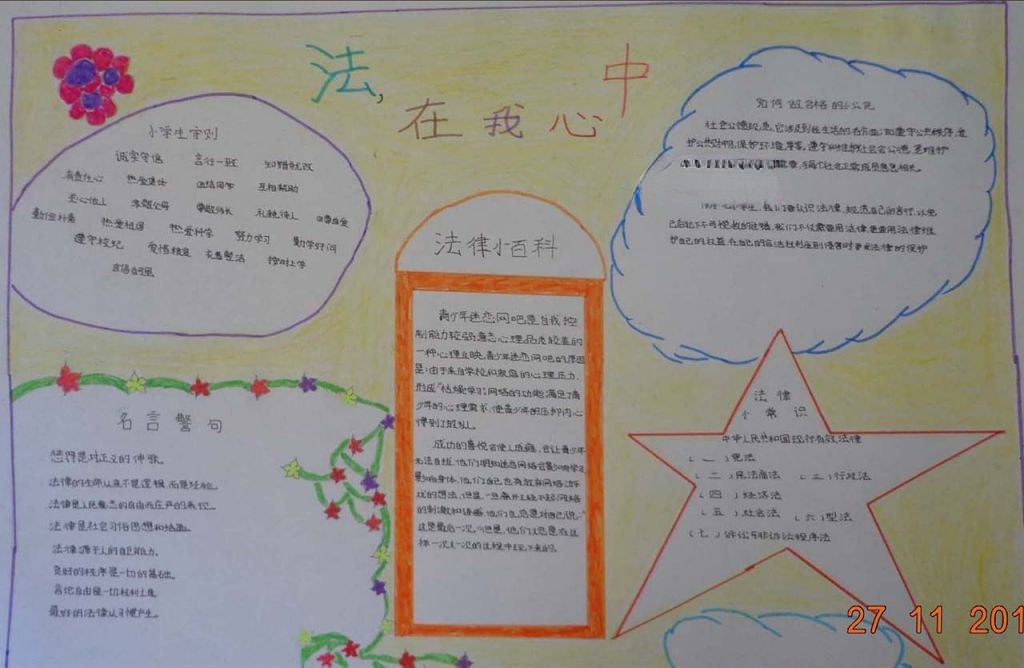 法,在我心中
小学生守则
诚实守信 言行一致 知错就改
有责任心 热爱集体 团结同学 互相帮助
关心他人 孝敬父母 尊敬师长 礼貌待人 自尊自爱
勤俭朴素 热爱祖国 热爱科学 努力学习 勤学好问
遵守校纪 爱惜粮食 衣着整洁 按时上学
自信自强
名言警句
法律的生命从来不是逻辑而是经验。
法律是人民意志的自由而庄严的表现。
法律是社会习俗思想和结晶。
法律源于人的自卫能力。
良好的秩序是一切的基础。
言论自由是一切权利之母
最好的法律从习惯产生。
法律小百科
青少年迷恋网吧是自我控
制能力较弱意志心理品质较差的
一种心理反映,青少年迷恋网吧的原因
是:由于来自学校和家庭的心理压力,
形成"枯燥学习;网络的功能满足了青
少年的心理需求,使青少年的压抑内心
得到了放松。
成功的喜悦会使人成瘾,会让青少年
无法自拔,他们明知迷恋网络会影响学习
影响身体,他们自己也有放弃网络游
戏的想法,但是,一旦离开又经不起网络
的刺激和诱惑,他们又总是对自己说:"
这是最后一次。"但是,他们又总是在这
样一次又一次的过程中玩下来的。
如何做合格的小公民
社会公德规范,它涉及到我生活的各方面;如遵守公共秩序,爱
护公共财物,保护环境,尊客,遵守和维护社会公德,是维护
我们要认识法律,规范自己的言行,以免
己会犯下不可挽救的错误,我们不仅需要用法律,更要用法律维
护自己的权益,在自己的合法权利受到侵害时寻求法律的保护
法律
小常识
中华人民共和国现行有效法律
(一)宪法
(二)民法商法 (三)行政法
(四)经济法
(五)社会法 (六)型法
(七)诉讼与非诉讼程序法
27 11 201